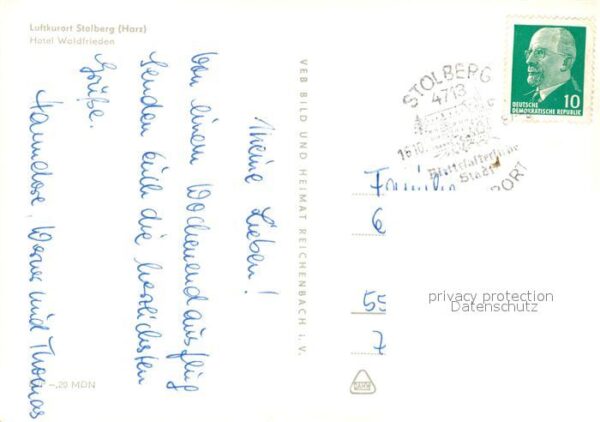 Luftkurort Stolberg (Harz)
Hotel Waldfrieden
Meine Lieben!
Von einem Wochenendausflug
senden euch die herzlichsten
Grüße.
Hannelore, Werner und Thomas
-,20 MDN
VEB BILD UND HEIMAT REICHENBACH i. V.
STOLBERG
4713
16.10.
Mittelalterliche
Stadt
DEUTSCHE
DEMOKRATISCHE REPUBLIK
10
Familie
6
55
7
privacy protection
Datenschutz